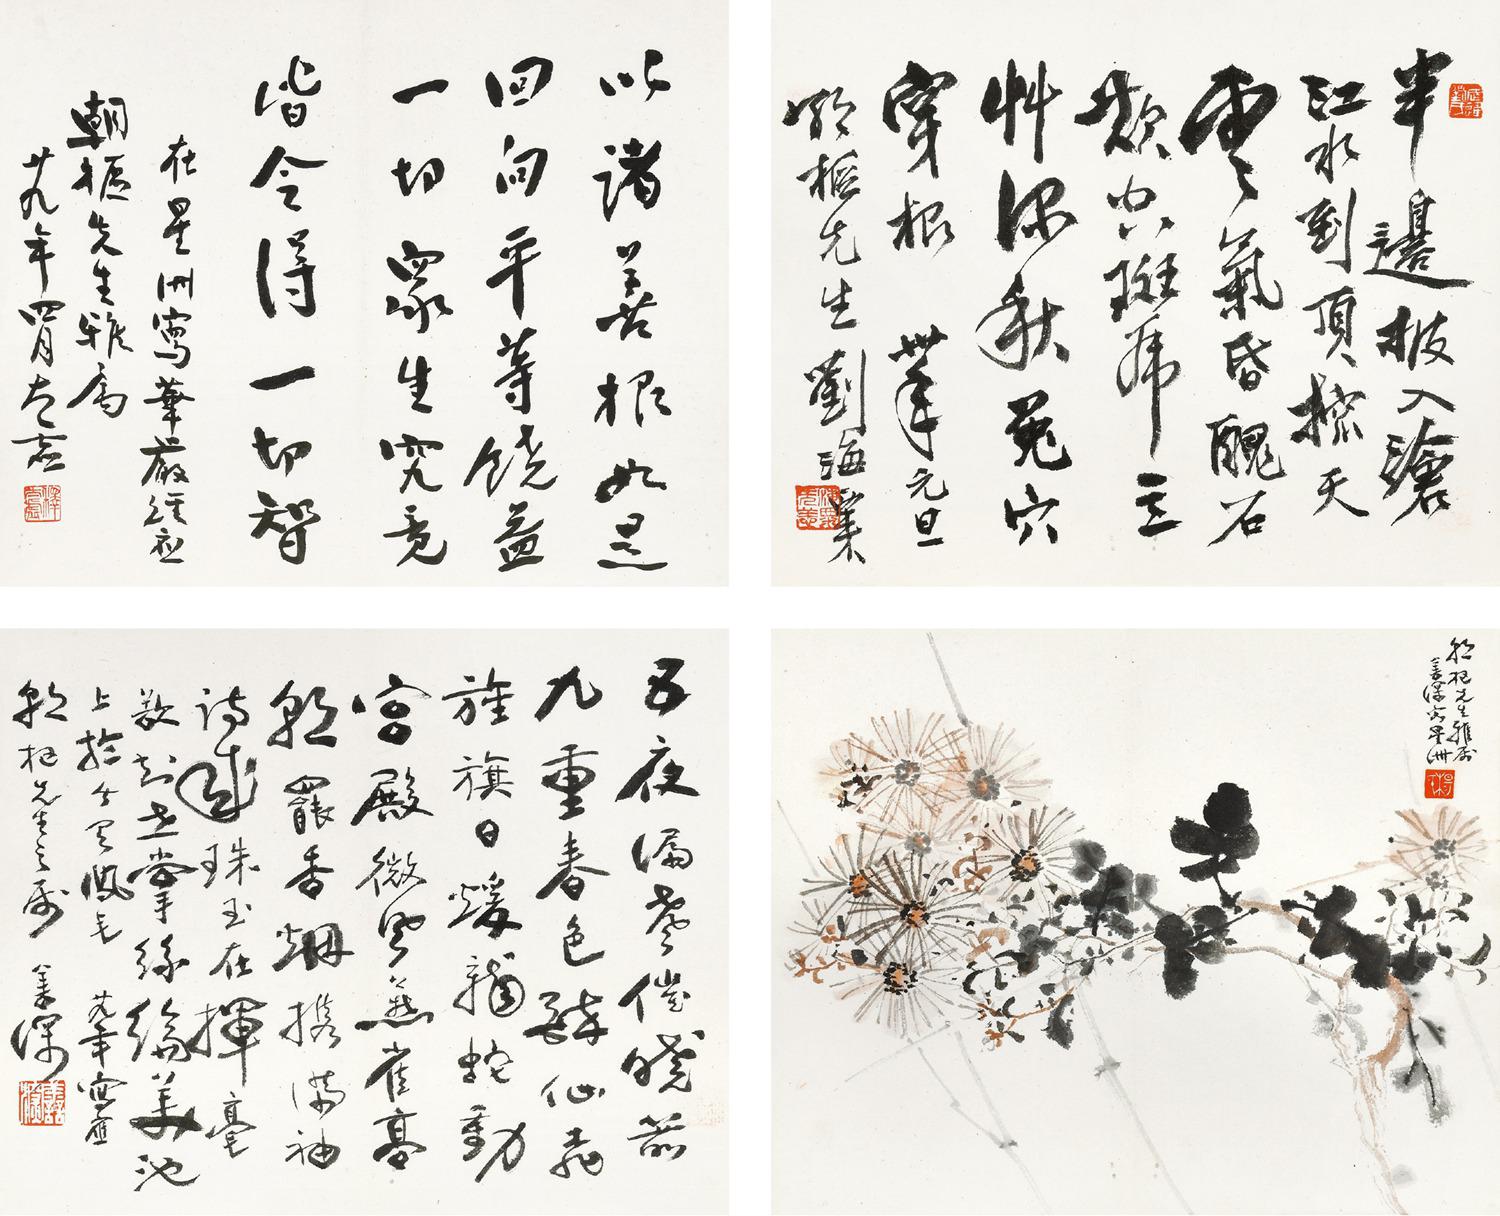 以諸善根如是
回向平等饒益
一切眾生究竟
皆令得一切智
在星洲寫華嚴經應
朝樞先生雅屬
廿九年四月太虛
半邊披入滄
江水到頂擦天
雲氣昏醜石
斑虎立
艸深秋兔穴
穿根 卅年元旦
朝樞先生 劉海粟
五夜漏聲催曉箭
九重春色醉仙桃
旌旗日煖龍蛇動
宮殿微風燕雀高
朝罷香煙攜滿袖
詩成珠玉在揮毫
欲知世掌絲綸美池
上於今有鳳毛 廿九年寫應
朝樞先生之屬 善深
朝樞先生雅屬
善深客星洲